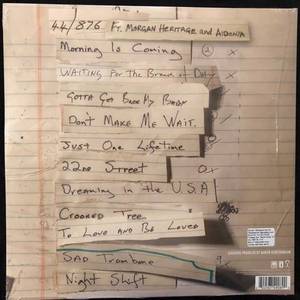 44/876 Ft. MORGAN HERITAGE and AIDONIA
Morning Is Coming
WAITING For THE Break of Day
GOTTA GET BACK My BABY
DON'T MAKE ME WAIT.
JUST ONE Lifetime
22nd STREET
Dreaming in the U.S.A
CROOKED TREE
To LOVE AND BE LOVED
SAD TROMBONE
Night Shift